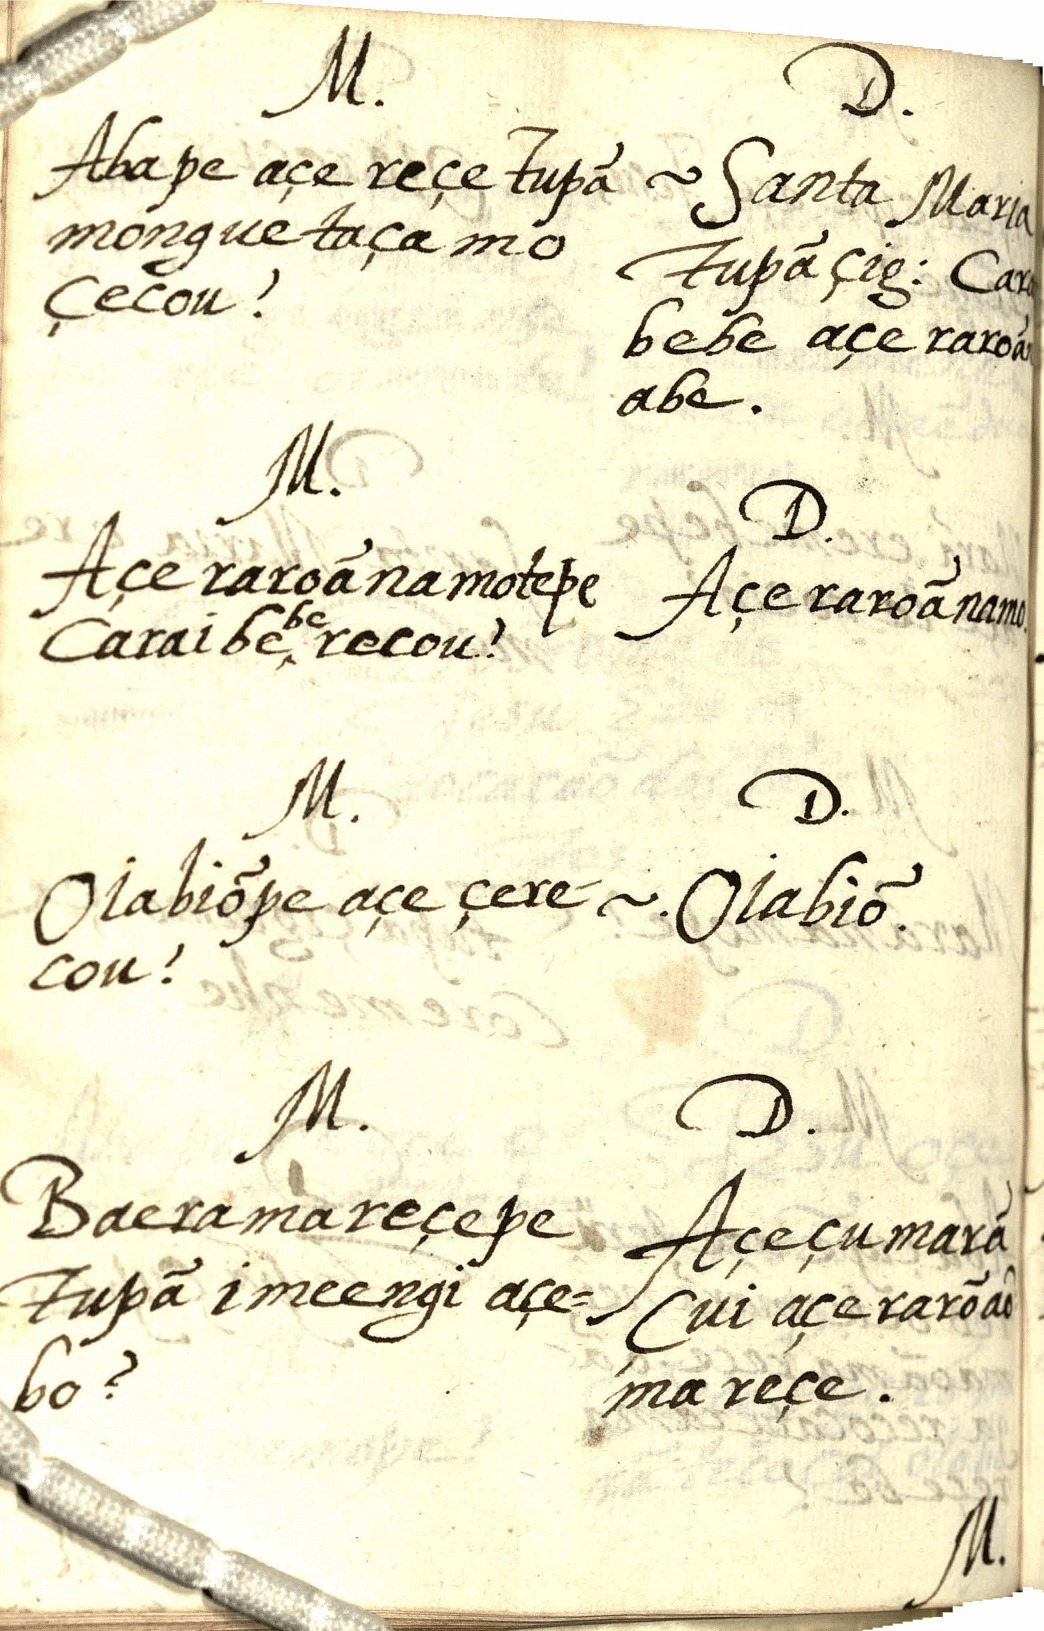 M.
Abape açe reçe Tupã
monguetaçamo
Çecou?
D.
~ Santa Maria
Tupã çig: Cara
bebe açe raroã
abe.
M.
Açe raroãnamotepe
Caraibebe recou?
D.
Açe raroãnamo.
M.
Oiabiõpe açe çere-
cou?
D.
~. Oiabiõ.
M.
Baeramareçepe
Tupã imeengi açe=
bo?
D.
Açeçumarã
Çui açeraroão
mareçe.
M.